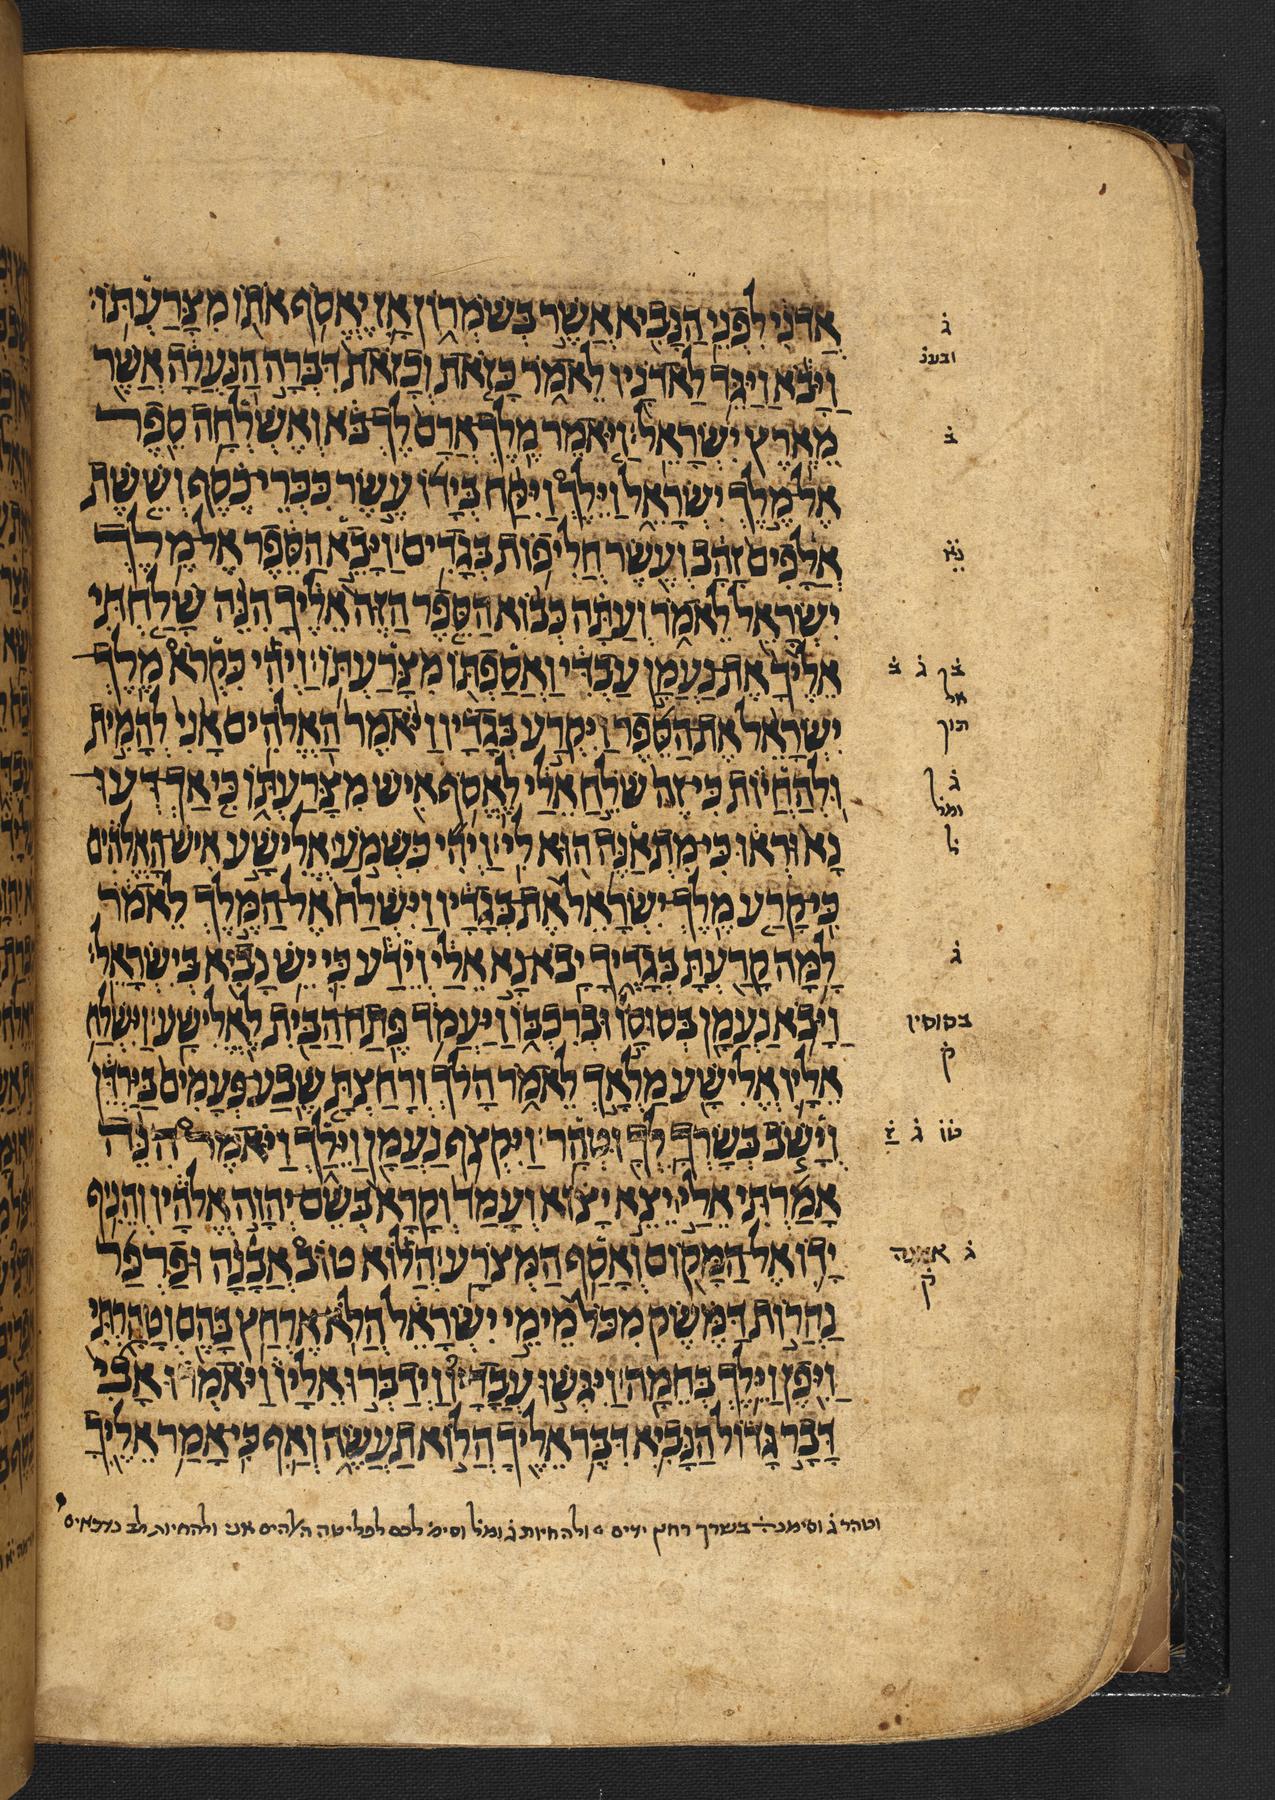 אֲדֹנִי לִפְנֵי הַנָּבִיא אֲשֶׁר בְּשֹׁמְרוֹן אָז יֶאֱסֹף אֹתוֹ מִצָּרַעְתּוֹ׃
וַיָּבֹא וַיַּגֵּד לַאדֹנָיו לֵאמֹר כָּזֹאת וְכָזֹאת דִּבְּרָה הַנַּעֲרָה אֲשֶׁר
מֵאֶרֶץ יִשְׂרָאֵל׃ וַיֹּאמֶר מֶלֶךְ אֲרָם לֶךְ בֹּא וְאֶשְׁלְחָה סֵפֶר
אֶל מֶלֶךְ יִשְׂרָאֵל וַיֵּלֶךְ וַיִּקַּח בְּיָדוֹ עֶשֶׂר כִּכְּרֵי כֶסֶף וְשֵׁשֶׁת
אֲלָפִים זָהָב וְעֶשֶׂר חֲלִיפוֹת בְּגָדִים׃ וַיָּבֵא הַסֵּפֶר אֶל מֶלֶךְ
יִשְׂרָאֵל לֵאמֹר וְעַתָּה כְּבוֹא הַסֵּפֶר הַזֶּה אֵלֶיךָ הִנֵּה שָׁלַחְתִּי
אֵלֶיךָ אֶת נַעֲמָן עַבְדִּי וַאֲסַפְתּוֹ מִצָּרַעְתּוֹ׃ וַיְהִי כִּקְרֹא מֶלֶךְ
יִשְׂרָאֵל אֶת הַסֵּפֶר וַיִּקְרַע בְּגָדָיו וַיֹּאמֶר הָאֱלֹהִים אָנִי לְהָמִית
וּלְהַחֲיוֹת כִּי זֶה שֹׁלֵחַ אֵלַי לֶאֱסֹף אִישׁ מִצָּרַעְתּוֹ כִּי אַךְ דְּעוּ
נָא וּרְאוּ כִּי מִתְאַנֶּה הוּא לִי׃ וַיְהִי כִּשְׁמֹעַ אֱלִישָׁע אִישׁ הָאֱלֹהִים
כִּי קָרַע מֶלֶךְ יִשְׂרָאֵל אֶת בְּגָדָיו וַיִּשְׁלַח אֶל הַמֶּלֶךְ לֵאמֹר
לָמָּה קָרַעְתָּ בְּגָדֶיךָ יָבֹא נָא אֵלַי וְיֵדַע כִּי יֵשׁ נָבִיא בְּיִשְׂרָאֵל׃
וַיָּבֹא נַעֲמָן בְּסוּסָו וּבְרִכְבּוֹ וַיַּעֲמֹד פֶּתַח הַבַּיִת לֶאֱלִישָׁע׃ וַיִּשְׁלַח
אֵלָיו אֱלִישָׁע מַלְאָךְ לֵאמֹר הָלֹךְ וְרָחַצְתָּ שֶׁבַע פְּעָמִים בַּיַּרְדֵּן
וְיָשֹׁב בְּשָׂרְךָ לְךָ וּטְהָר׃ וַיִּקְצֹף נַעֲמָן וַיֵּלַךְ וַיֹּאמֶר הִנֵּה
אָמַרְתִּי אֵלַי יֵצֵא יָצוֹא וְעָמַד וְקָרָא בְּשֵׁם יְהוָה אֱלֹהָיו וְהֵנִיף
יָדוֹ אֶל הַמָּקוֹם וְאָסַף הַמְּצֹרָע׃ הֲלוֹא טוֹב אֲבָנָה וּפַרְפַּר
נַהֲרוֹת דַּמֶּשֶׂק מִכֹּל מֵימֵי יִשְׂרָאֵל הֲלֹא אֶרְחַץ בָּהֶם וְטָהָרְתִּי
וַיִּפֶן וַיֵּלֶךְ בְּחֵמָה׃ וַיִּגְּשׁוּ עֲבָדָיו וַיְדַבְּרוּ אֵלָיו וַיֹּאמְרוּ אָבִי
דָּבָר גָּדוֹל הַנָּבִיא דִּבֶּר אֵלֶיךָ הֲלוֹא תַעֲשֶׂה וְאַף כִּי אָמַר אֵלֶיךָ
ג
ב
ב ג ב
אל
תוך
ג
ומל
ל
ג
בסוסיו
ק
ג אמנה
ק
וטהר ג וסימנה בשרך רחץ ידים ולהחיות ג ומל וסימ לכם לפליטה האלהים אני ולהחיות לב נדכאים